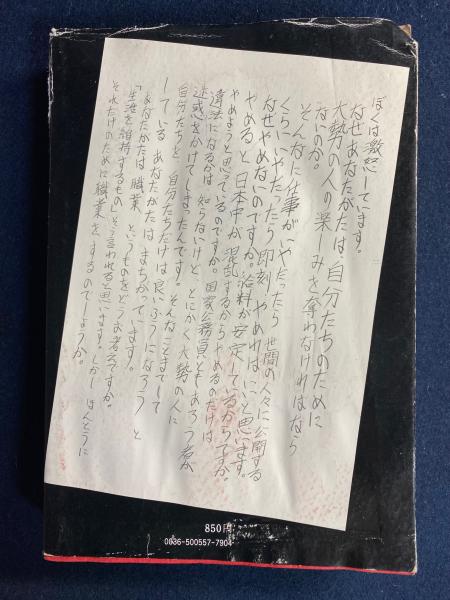 ぼくは激怒しています。
なぜあなたがたは、自分たちのために
大勢の人の楽しみを奪わなければなら
ないのか。
そんなに仕事がいやだったら 世間の人々に公開する
くらいいやだったら即刻 やめればいいと思います。
なぜやめないのですか。給料が安定しているからですか。
やめると日本中が混乱するからやめるのだけは
やめようと思っているのですか。国家公務員ともあろう者が
違法になるかは知らないけど、とにかく大勢の人に
迷惑をかけてしまったんです。そんなことまでして
自分たちと 自分たちだけは良いふうになろう と
している あなたがたは まちがっています。
あなたがたは職業 というものをどうお考えですか。
「生活を維持するもの」そう言われると思います。しかし ほんとうに
それだけのために職業をするのでしょうか。
850円
0036-500557-7904